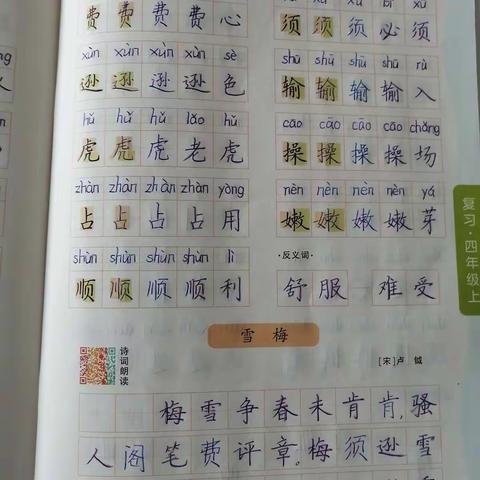 费 费 费 费 心
须 须 须 必 须
xùn xùn xùn xùn sè
shū shū shū shū rù
逊 逊 逊 逊 色
输 输 输 输 入
hǔ hǔ hǔ lǎo hǔ
cāo cāo cāo cāo chǎng
虎 虎 虎 老 虎
操 操 操 操 场
zhàn zhàn zhàn zhàn yòng
nèn nèn nèn nèn yá
占 占 占 占 用
嫩 嫩 嫩 嫩 芽
shùn shùn shùn shùn lì
·反义词·
顺 顺 顺 顺 利
舒服—难受
复习·四年级上
雪 梅
诗词朗读
[宋]卢 钺
梅雪争春未肯肯,骚
人阁笔费评章。梅须逊雪